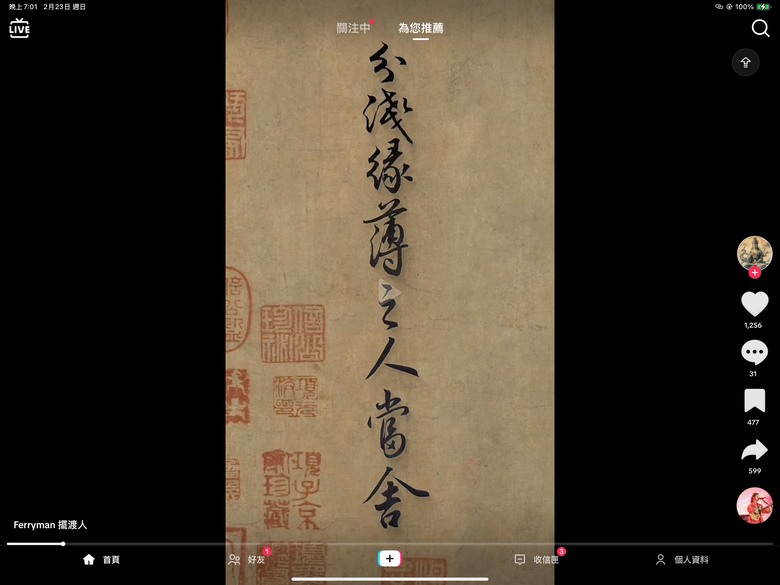 晚上7:01 2月23日 週日
100%
LIVE
關注中
為您推薦
分淺緣薄之人當舍
1,256
31
477
599
Ferryman 擺渡人
首頁
好友
1
收信匣
3
個人資料